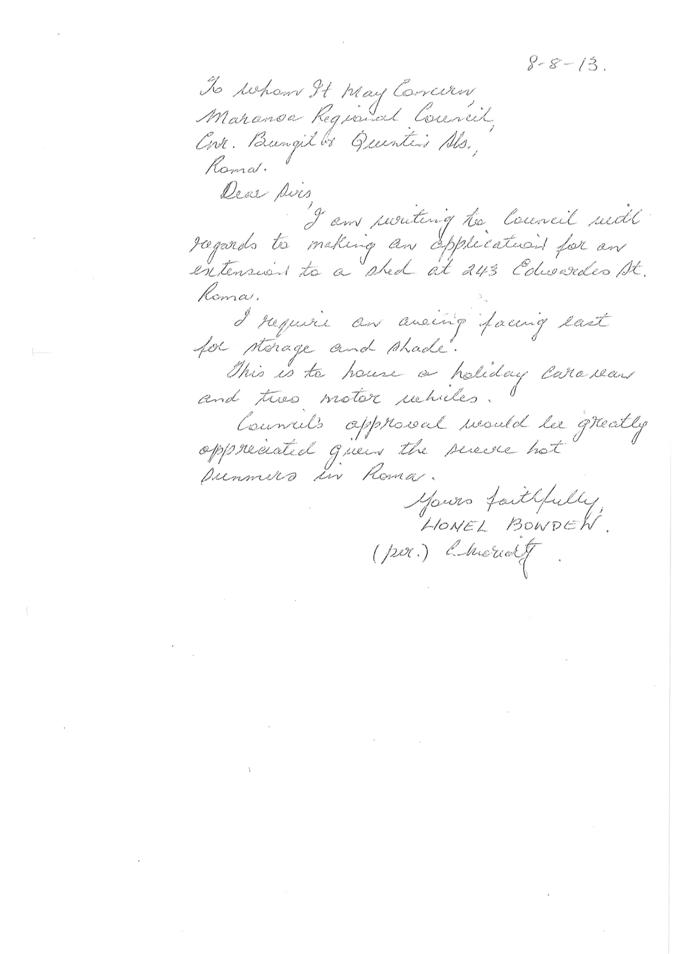 8-8-13.
To Whom It May Concern,
Maranoa Regional Council,
Cnr. Bungil & Quintin Sts.,
Roma.
Dear Sirs,
I am writing to Council with
regards to making an application for an
extension to a shed at 243 Edwardes St.
Roma.
I require an awning facing east
for storage and shade.
This is to house a holiday caravan
and two motor vehicles.
Council's approval would be greatly
appreciated given the severe hot
summers in Roma.
Yours faithfully,
LIONEL BOWDEN.
(per.)